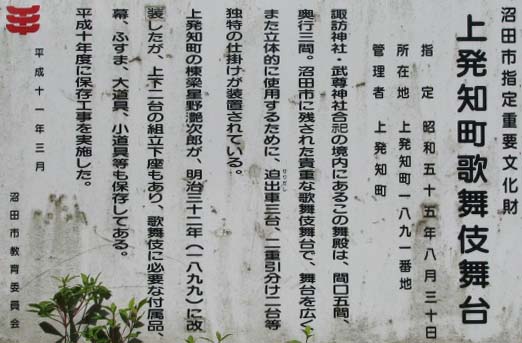 沼田市指定重要文化財
上発知町歌舞伎舞台
指定 昭和五十五年八月三十日
所在地 上発知町一八九一番地
管理者 上発知町
諏訪神社・武尊神社合祀の境内にあるこの舞殿は、間口五間、
奥行三間。沼田市に残された貴重な歌舞伎舞台で、舞台を広く
また立体的に使用するために、迫出車三台、二重引分け二台等
せりだし
独特の仕掛けが装置されている。
上発知町の棟梁星野滟次郎が、明治三十二年(一八九九)に改
装したが、上下二台の組立下座もあり、歌舞伎に必要な付属品、
幕、ふすま、大道具、小道具等も保存してある。
平成十年度に保存工事を実施した。
平成十一年三月
沼田市教育委員会